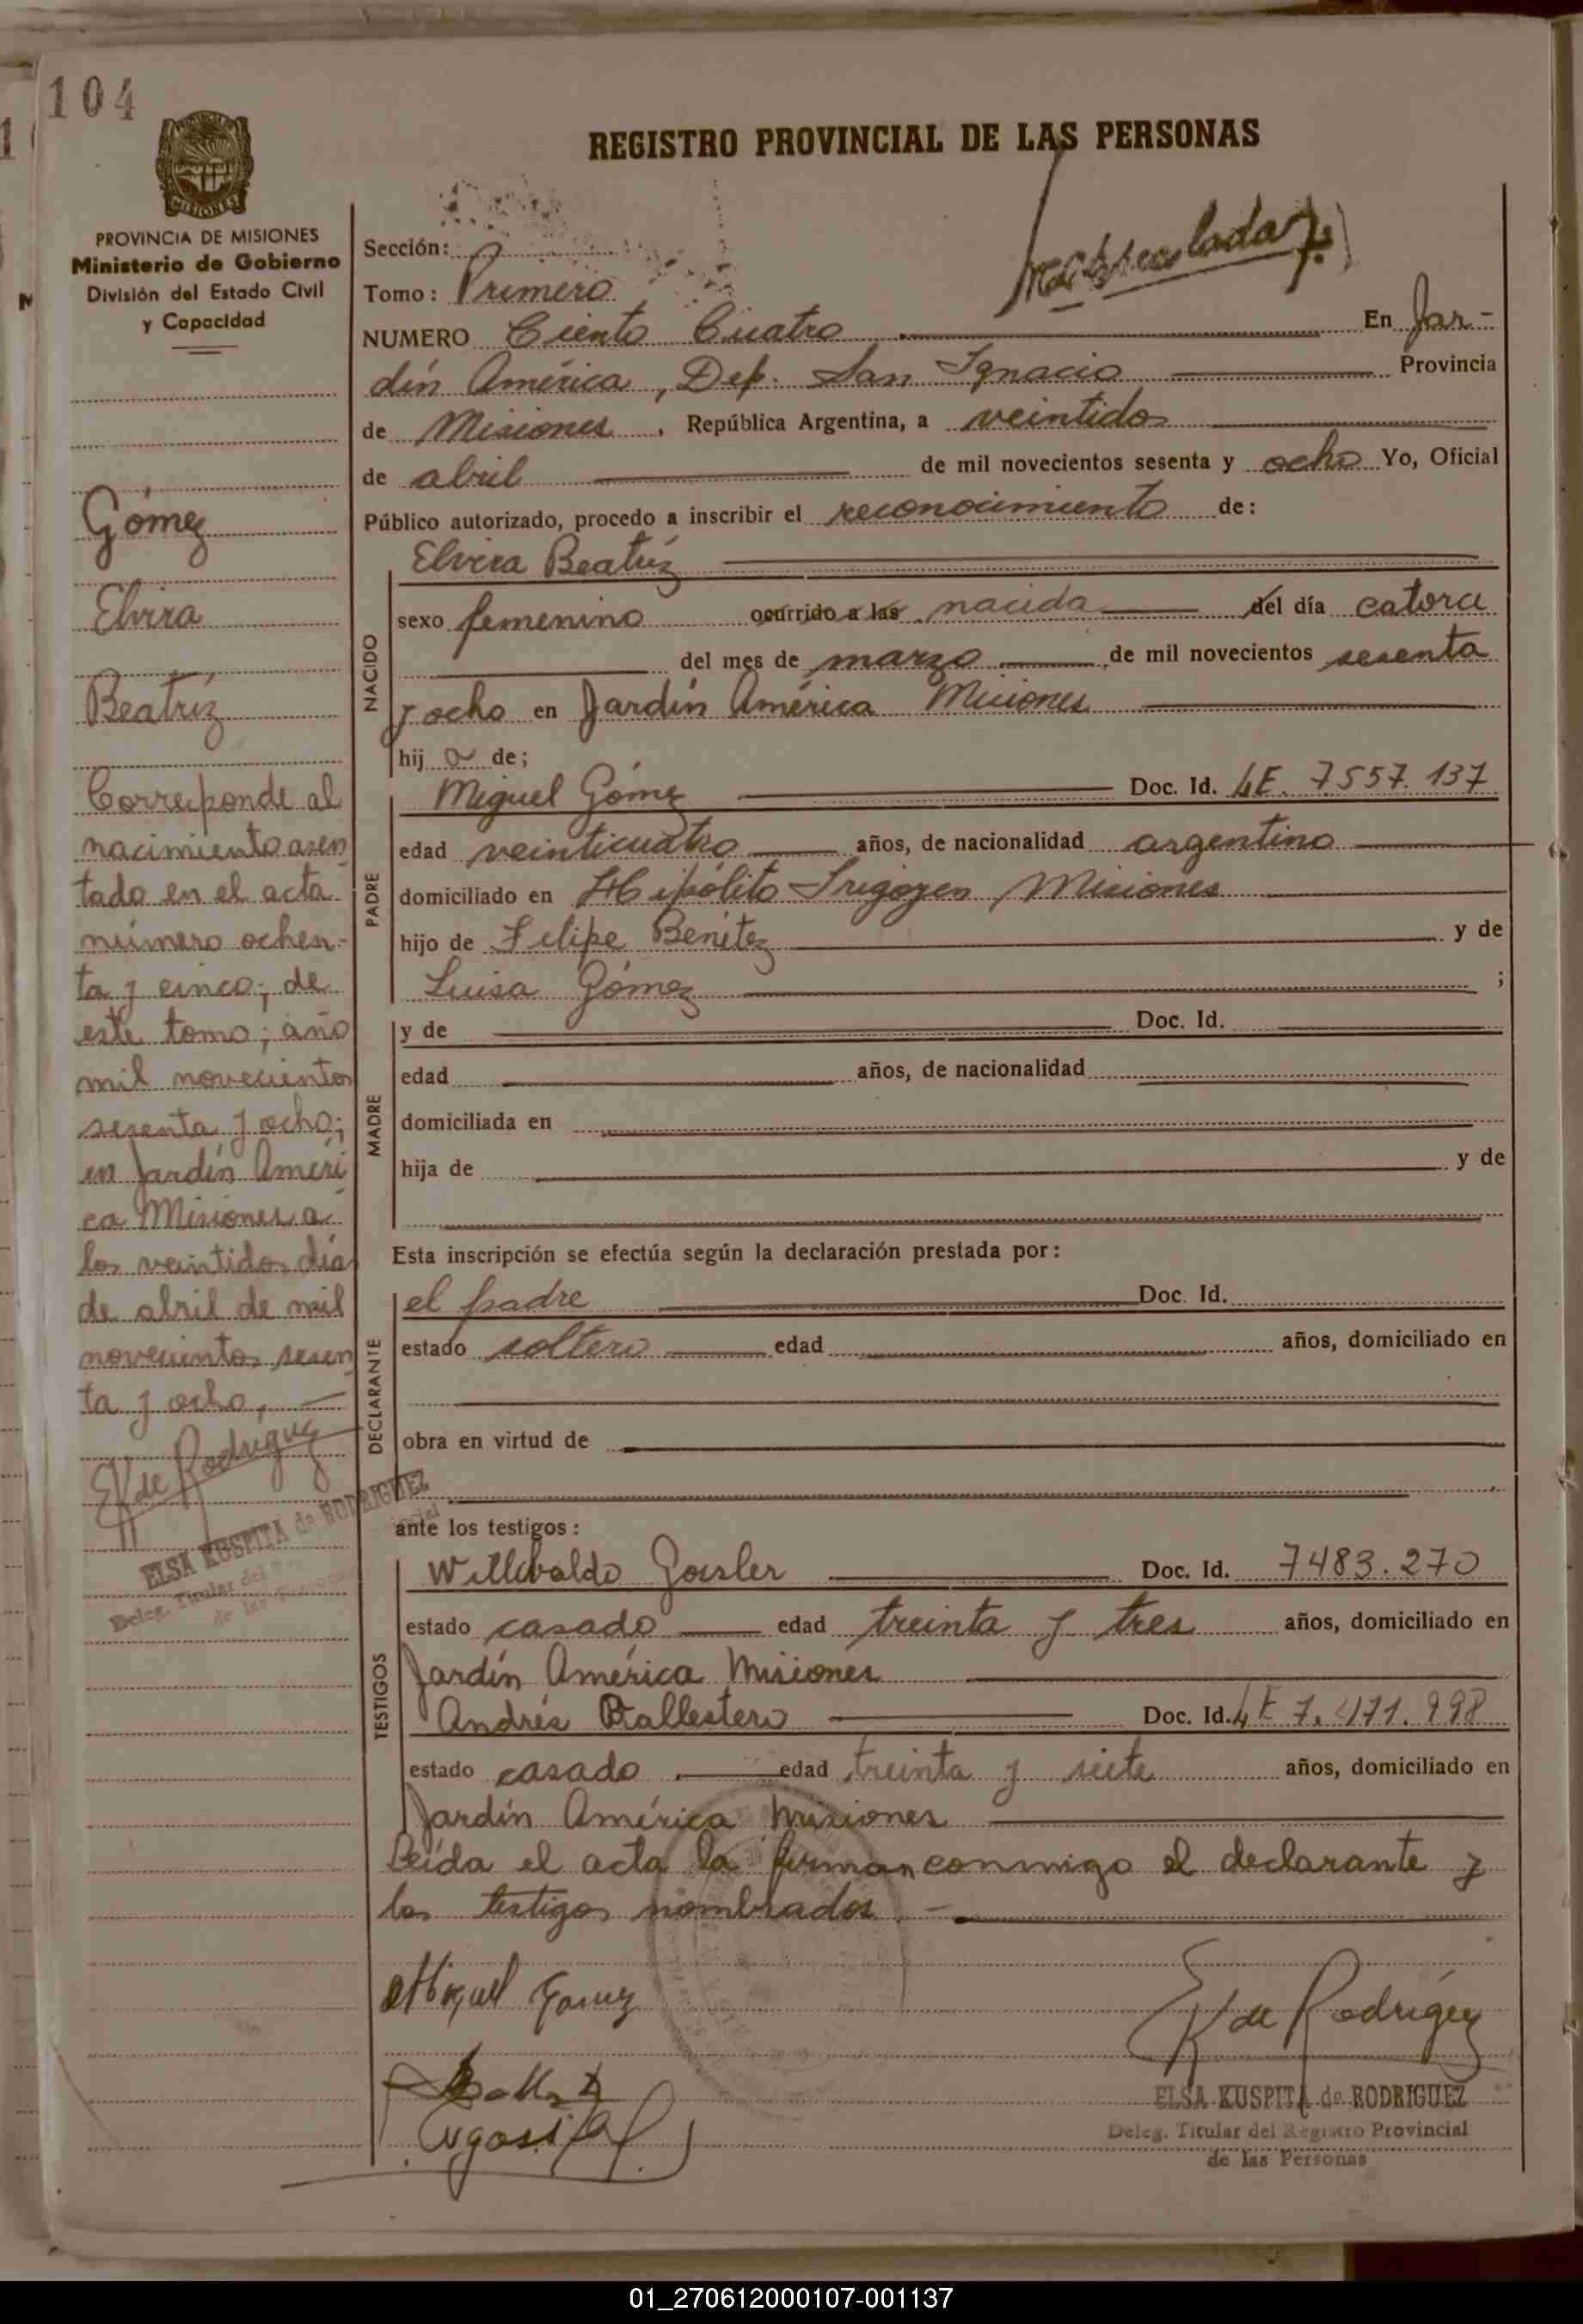 104
REGISTRO PROVINCIAL DE LAS PERSONAS
PROVINCIA DE MISIONES
Ministerio de Gobierno
División del Estado Civil
y Capacidad
Gómez
Elvira
Beatríz
Corresponde al
nacimiento asen
tado en el acta
número ochen-
ta y cinco; de
este tomo; año
mil novecientos
sesenta y ocho;
en Jardín Améri
ca Misiones a
los veintidos días
de abril de mil
novecientos sesen
ta y ocho,
EK de Rodríguez
ELSA KUSPITA de RODRIGUEZ
Deleg. Titular del
de las
Sección:
Tomo: Primero
NUMERO Ciento Cuatro En Jar-
dín América, Dep. San Ignacio Provincia
de Misiones, República Argentina, a veintidos
de abril de mil novecientos sesenta y ocho Yo, Oficial
Público autorizado, procedo a inscribir el reconocimiento de:
Elvira Beatríz
NACIDO
sexo femenino ocurrido a las nacida del día catorce
del mes de marzo de mil novecientos sesenta
y ocho en Jardín América Misiones
hij a de;
PADRE
Miguel Gómez Doc. Id. LE. 7557.137
edad veinticuatro años, de nacionalidad argentino
domiciliado en Hipólito Irigoyen Misiones
hijo de Felipe Benítez y de
Luisa Gómez ;
MADRE
y de Doc. Id.
edad años, de nacionalidad
domiciliada en
hija de y de
Esta inscripción se efectúa según la declaración prestada por:
DECLARANTE
el padre Doc. Id.
estado soltero edad años, domiciliado en
obra en virtud de
ante los testigos:
TESTIGOS
Willibaldo Doc. Id. 7483.270
estado casado edad treinta y tres años, domiciliado en
Jardín América Misiones
Andrés Ballestero Doc. Id. LE 7.471.998
estado casado edad treinta y siete años, domiciliado en
Jardín América Misiones
Leída el acta la firman conmigo el declarante y
los testigos nombrados.-
Miguel Gomez
EK de Rodríguez
ELSA KUSPITA de RODRIGUEZ
Deleg. Titular del Registro Provincial
de las Personas
01_270612000107-001137